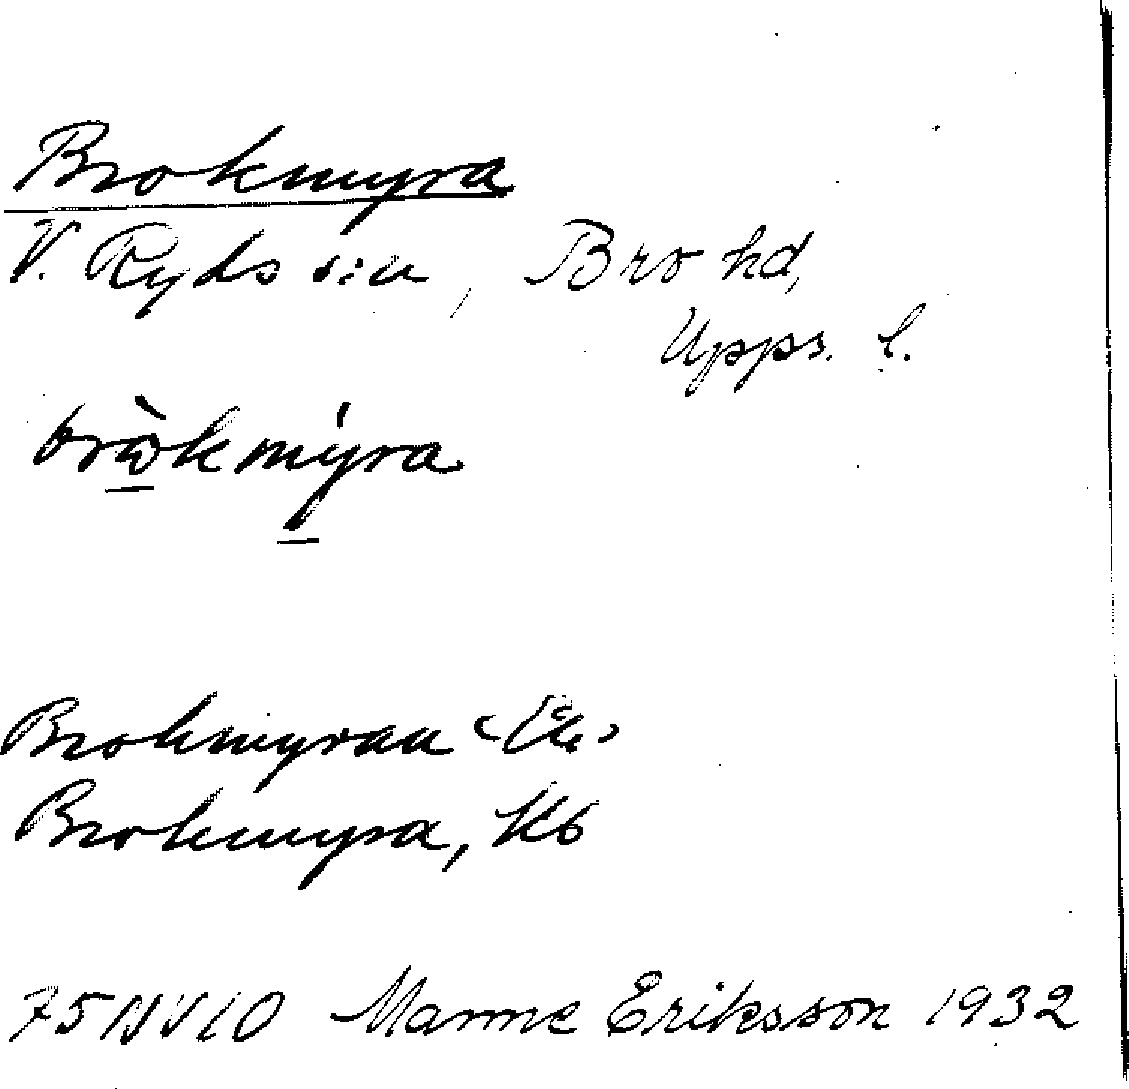 Brokmyra
V. Ryds s:n, Bro hd,
Upps. l.
bròkmýra
Brokmyran
Brokmyra, Kb
75NV10 Manne Eriksson 1932